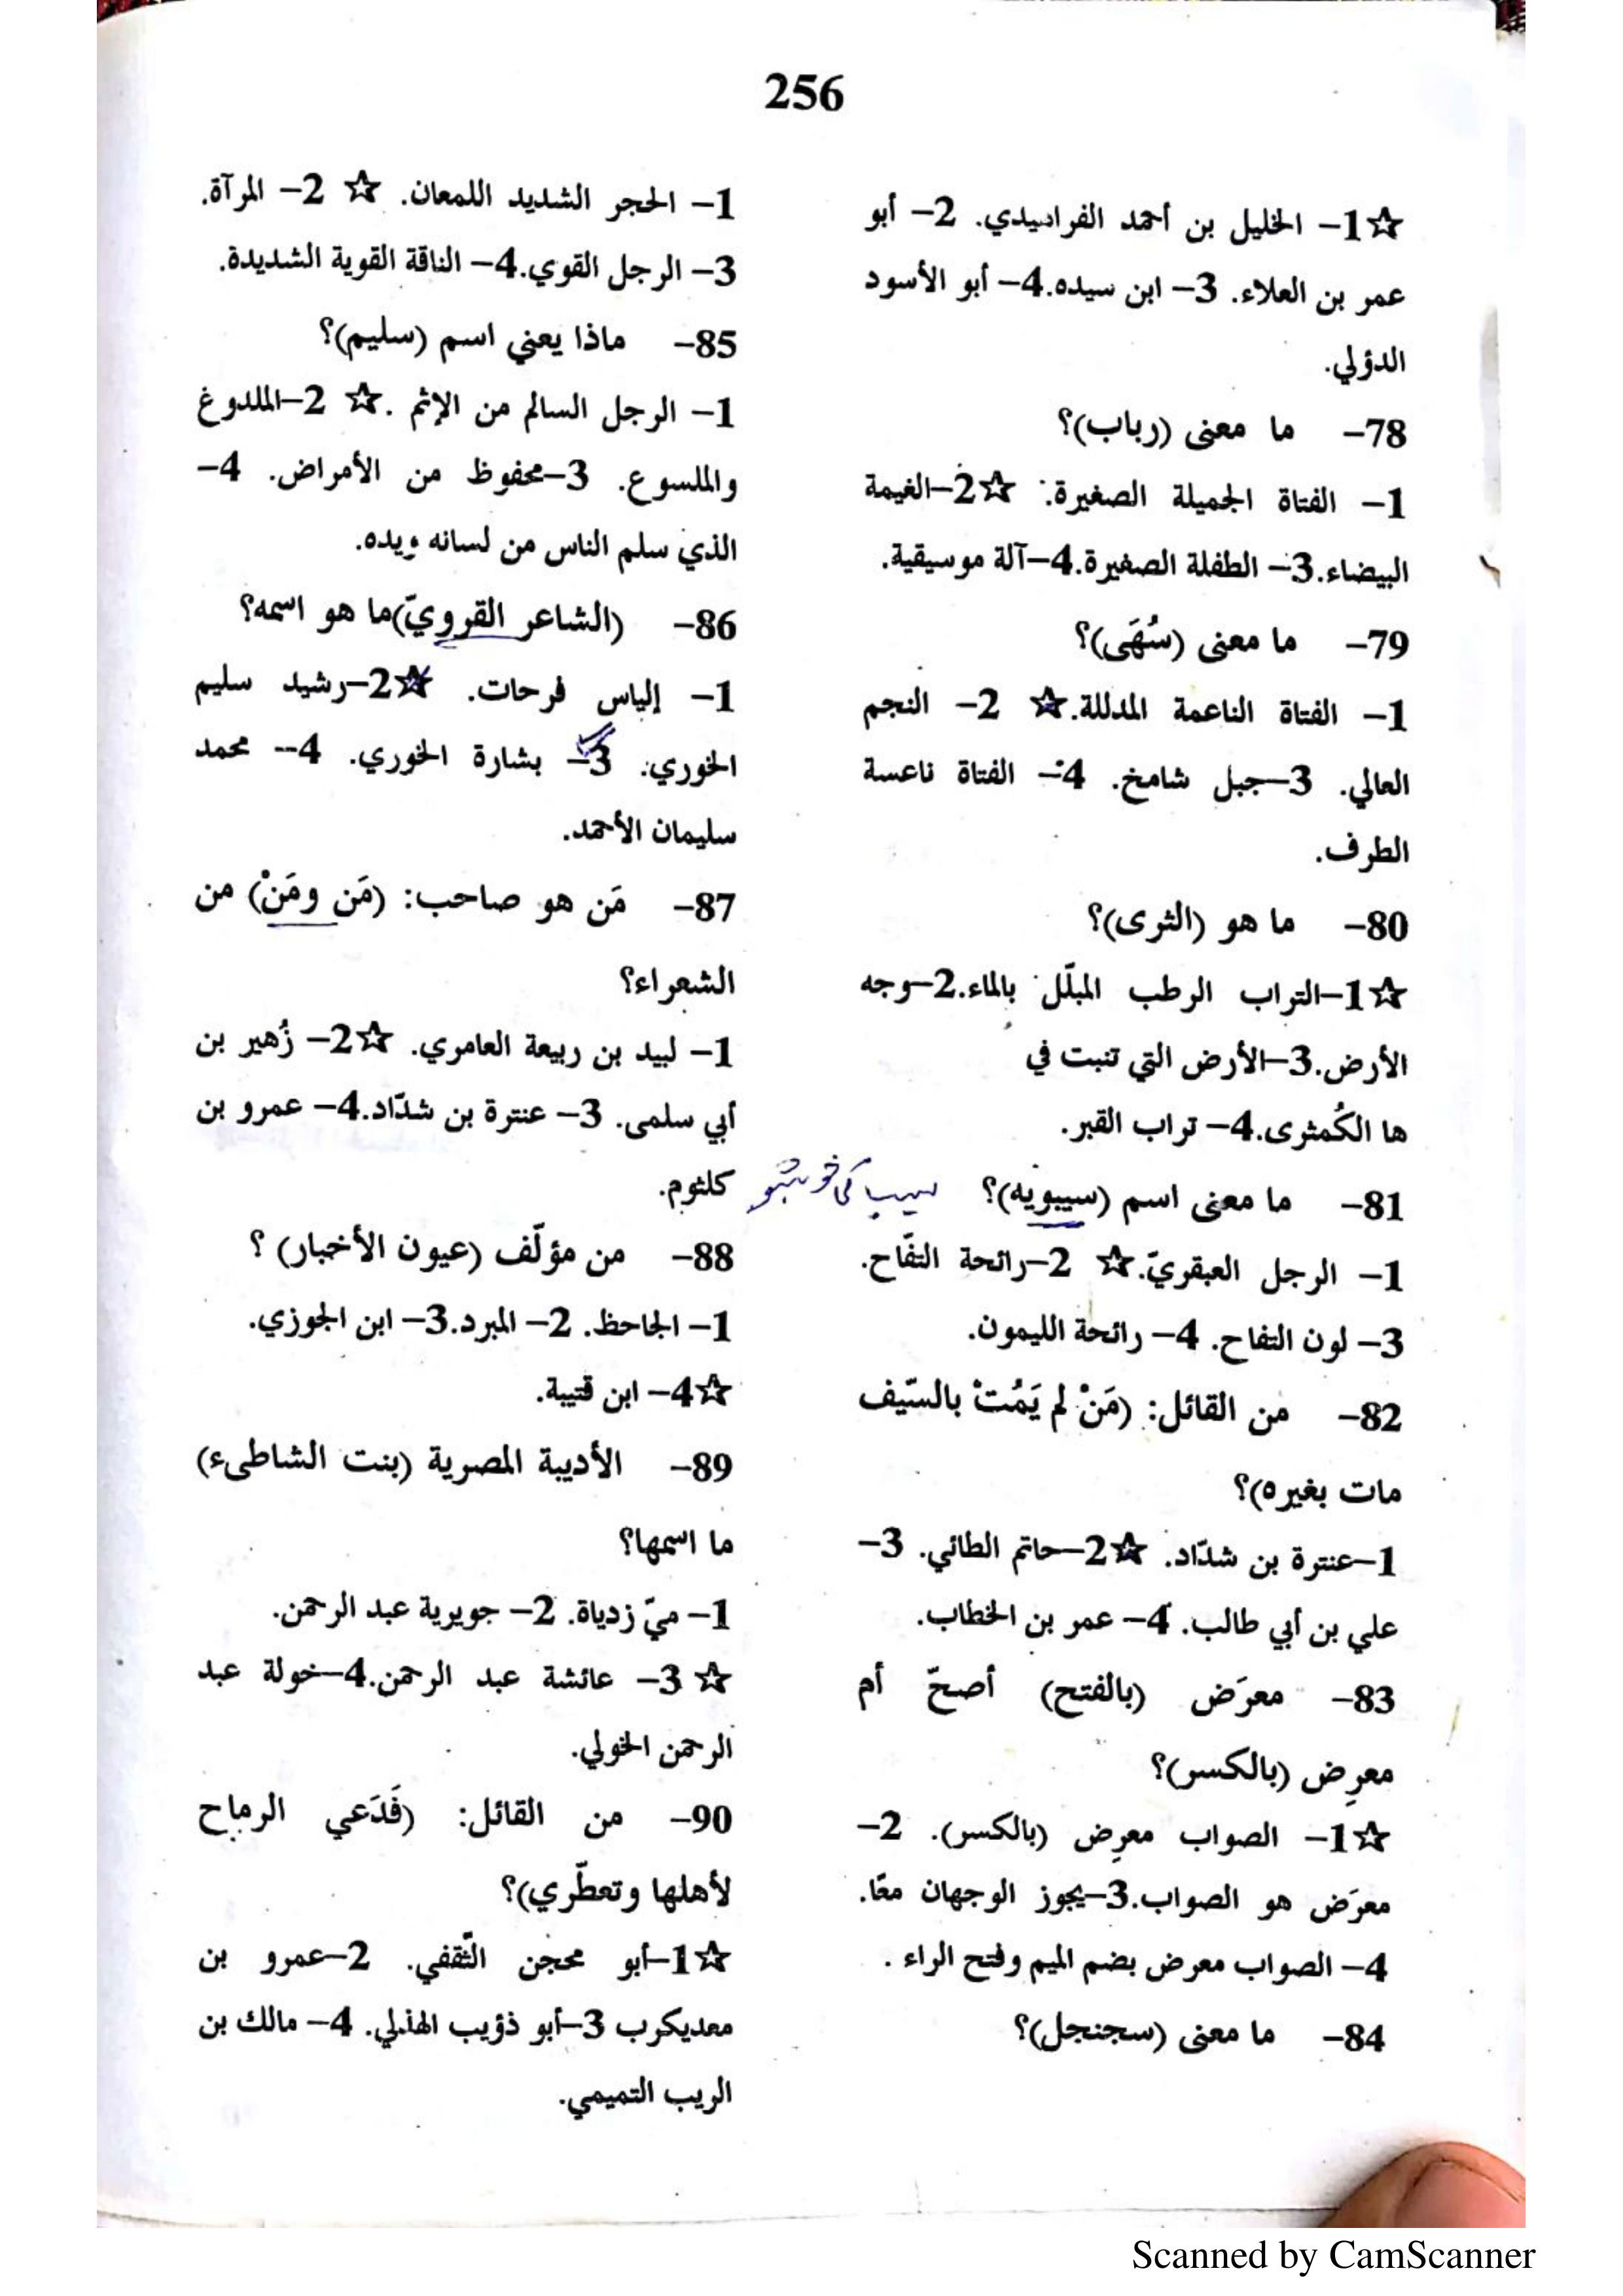 256
☆1- الخليل بن أحمد الفراهيدي. 2- أبو
عمر بن العلاء. 3- ابن سيده.4- أبو الأسود
الدؤلي.
78- ما معنى (رباب)؟
1- الفتاة الجميلة الصغيرة. ☆2-الغيمة
البيضاء.3- الطفلة الصغيرة.4-آلة موسيقية.
79- ما معنى (سُهَى)؟
1- الفتاة الناعمة المدللة.☆ 2- النجم
العالي. 3-جبل شامخ. 4- الفتاة ناعسة
الطرف.
80- ما هو (الثرى)؟
☆1-التراب الرطب المبلّل بالماء.2-وجه
الأرض.3-الأرض التي تنبت في
ها الكُمثرى.4- تراب القبر.
81- ما معنى اسم (سيبويه)؟ سیب کی خوشبو
1- الرجل العبقريّ.☆ 2-رائحة التفّاح.
3- لون التفاح. 4- رائحة الليمون.
82- من القائل: (مَنْ لم يَمُتْ بالسّيف
مات بغيره)؟
1-عنترة بن شدّاد. ☆2-حاتم الطائي. 3-
علي بن أبي طالب. 4- عمر بن الخطاب.
83- معرَض (بالفتح) أصحّ أم
معرِض (بالكسر)؟
☆1- الصواب معرِض (بالكسر). 2-
معرَض هو الصواب.3-يجوز الوجهان معًا.
4- الصواب معرض بضم الميم وفتح الراء .
84- ما معنى (سجنجل)؟
1- الحجر الشديد اللمعان. ☆ 2- المرآة.
3- الرجل القوي.4- الناقة القوية الشديدة.
85- ماذا يعني اسم (سليم)؟
1- الرجل السالم من الإثم .☆ 2-الملدوغ
والملسوع. 3-محفوظ من الأمراض. 4-
الذي سلم الناس من لسانه ويده.
86- (الشاعر القرويّ)ما هو اسمه؟
1- إلياس فرحات. ☆2-رشيد سليم
الخوري. 3- بشارة الخوري. 4-- محمد
سليمان الأحمد.
87- مَن هو صاحب: (مَن ومَنْ) من
الشعراء؟
1- لبيد بن ربيعة العامري. ☆2- زُهير بن
أبي سلمى. 3- عنترة بن شدّاد.4- عمرو بن
كلثوم.
88- من مؤلّف (عيون الأخبار) ؟
1- الجاحظ. 2- المبرد.3- ابن الجوزي.
☆4- ابن قتيبة.
89- الأديبة المصرية (بنت الشاطىء)
ما اسمها؟
1- ميّ زدياة. 2- جويرية عبد الرحمن.
☆ 3- عائشة عبد الرحمن.4-خولة عبد
الرحمن الخولي.
90- من القائل: (فَدَعي الرماح
لأهلها وتعطّري)؟
☆1-أبو محجن الثّقفي. 2-عمرو بن
معديكرب 3-أبو ذؤيب الهذلي. 4- مالك بن
الريب التميمي.
Scanned by CamScanner